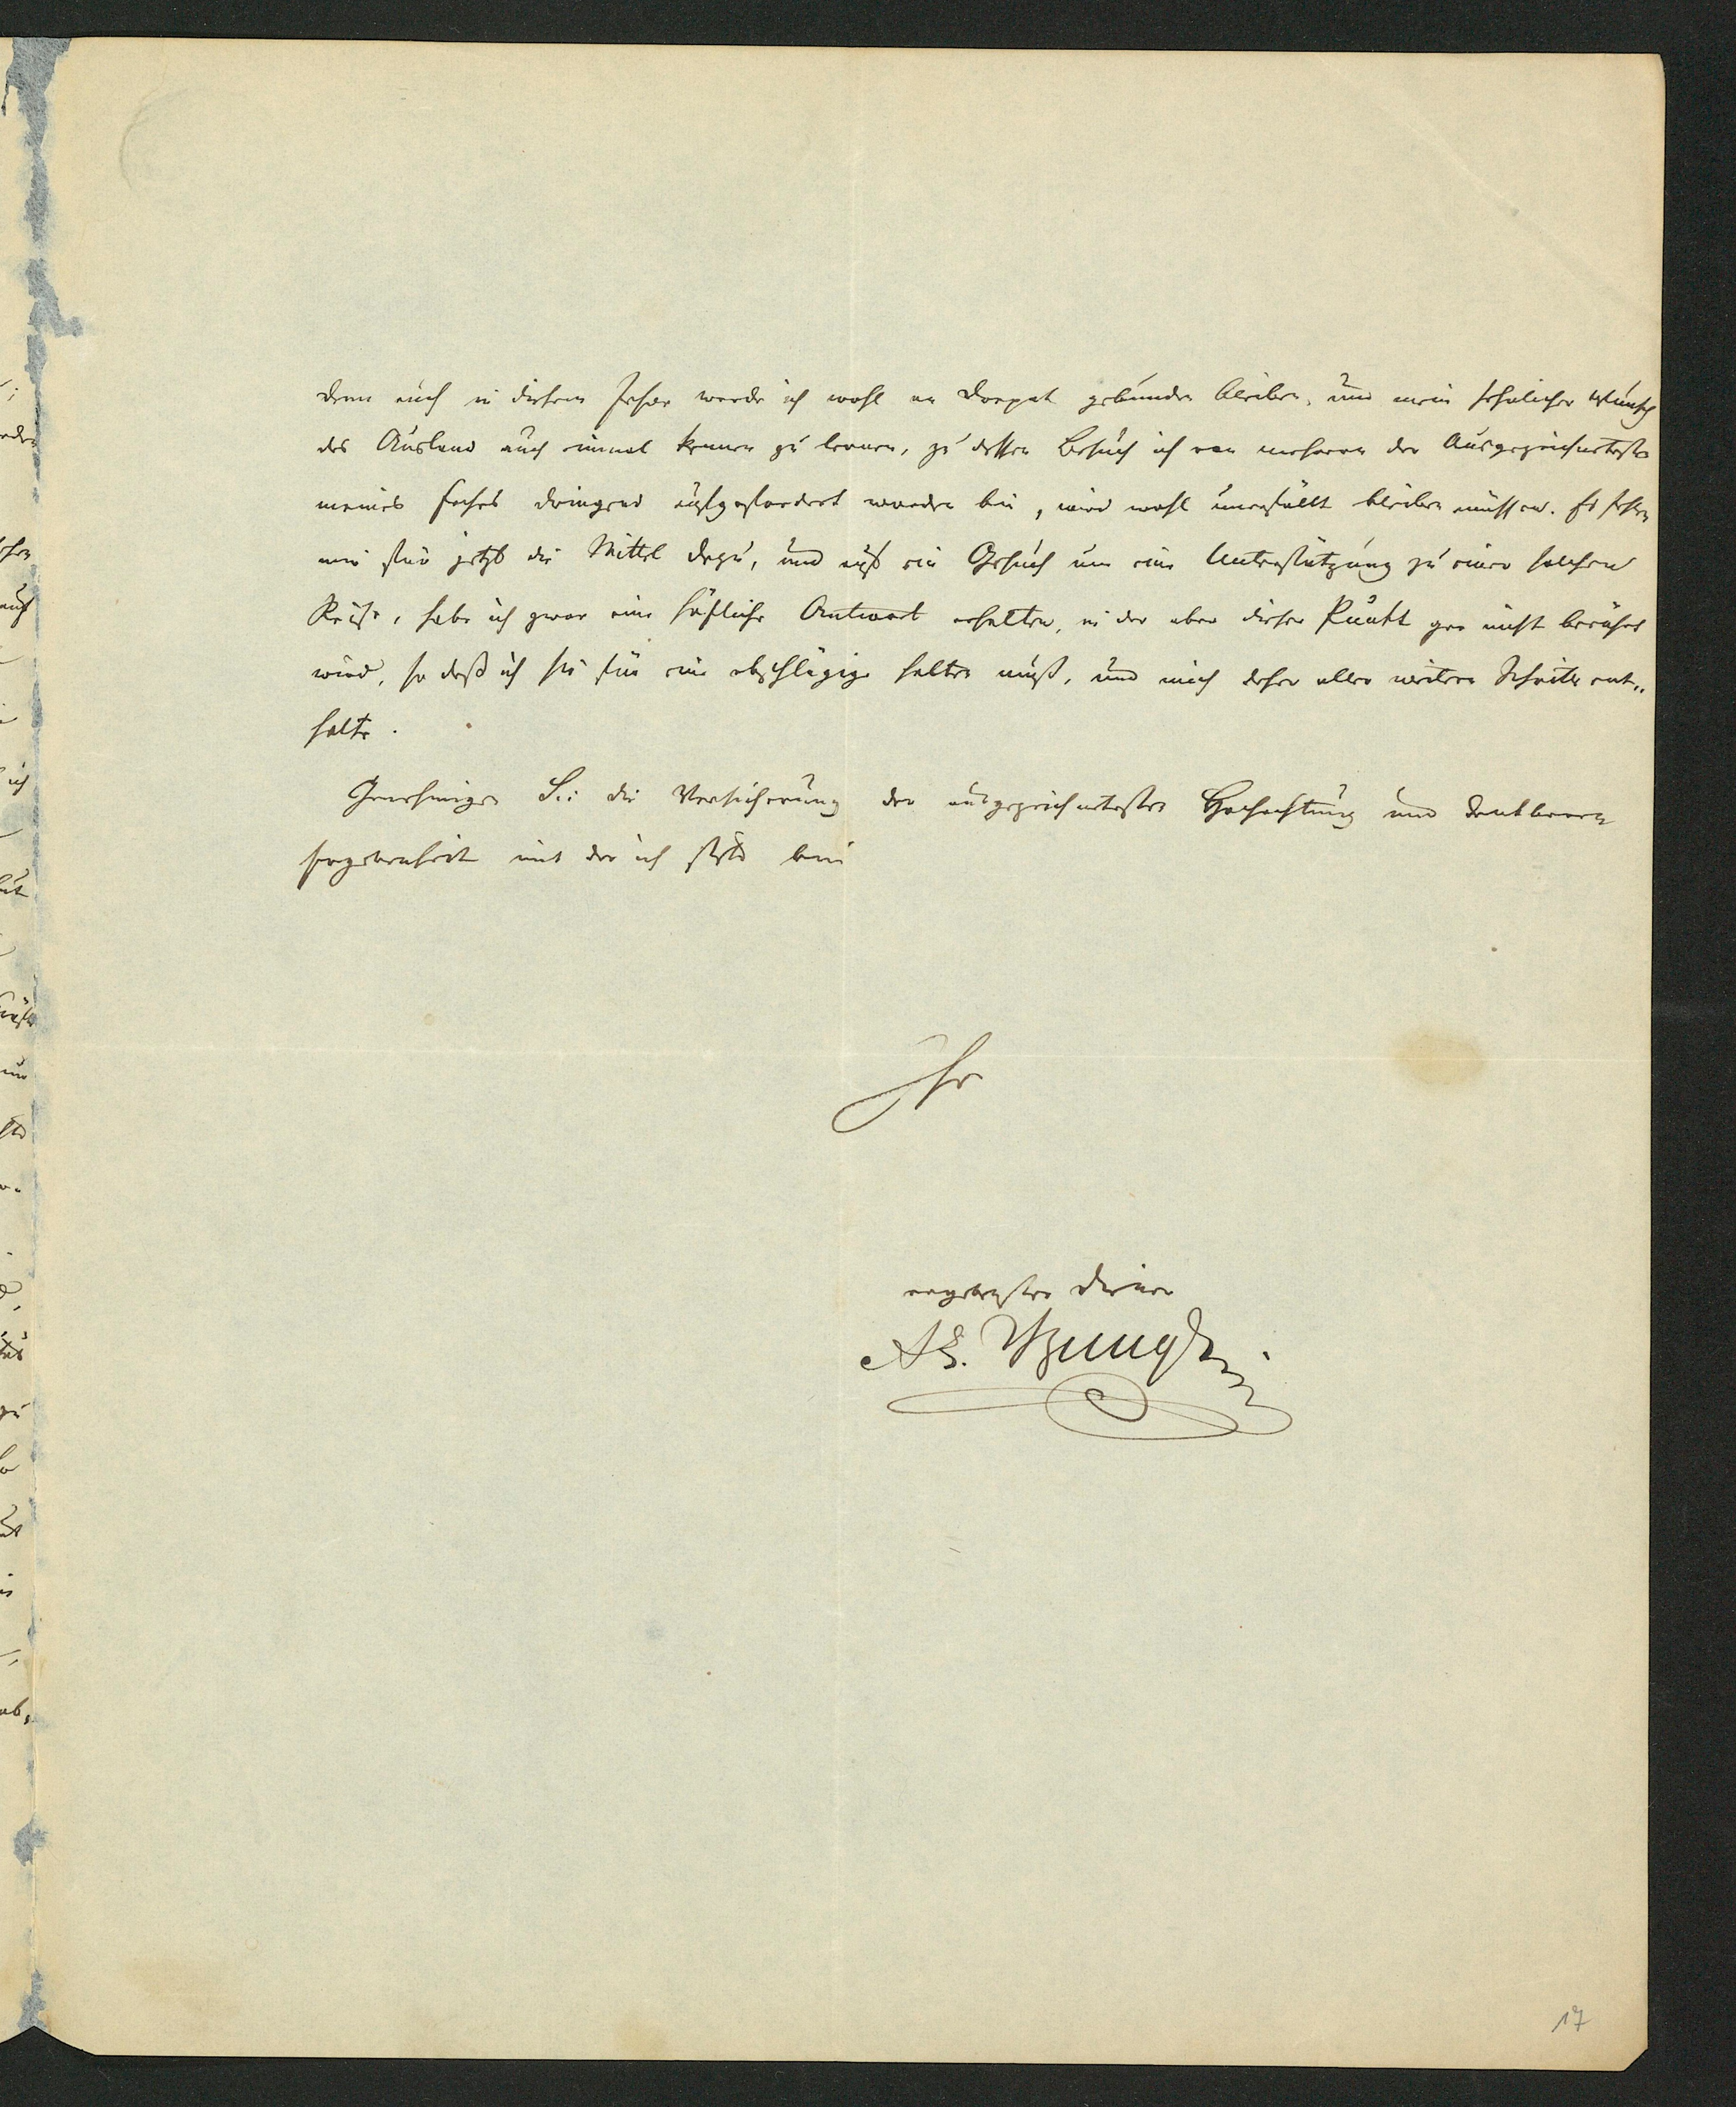 denn auch in diesem Jahre werde ich wohl an Dorpat gebunden bleiben, und mein sehnlicher Wunsch
das Ausland auch einmal kennen zu lernen, zu dessen Besuch ich von mehreren der Ausgezeichnetesten
meines Faches dringend aufgefordert worden bin, wird wohl unerfüllt bleiben müssen. Es fehlen
mir für jetzt die Mittel dazu, und auf ein Gesuch um eine Unterstützung zu einer solchen
Reise, habe ich zwar eine höfliche Antwort erhalten, in der aber dieser Punkt gar nicht berührt
wird, so daß ich sie für eine abschlägige halten muß, und mich daher aller weiteren Schritte ent„
halte.
Genehmigen Sie die Versicherung der ausgezeichnetesten Hochachtung und dankbaren
Ergebenheit mit der ich stets bin
Ihr
ergebenster Diener
Al. Bunge
17